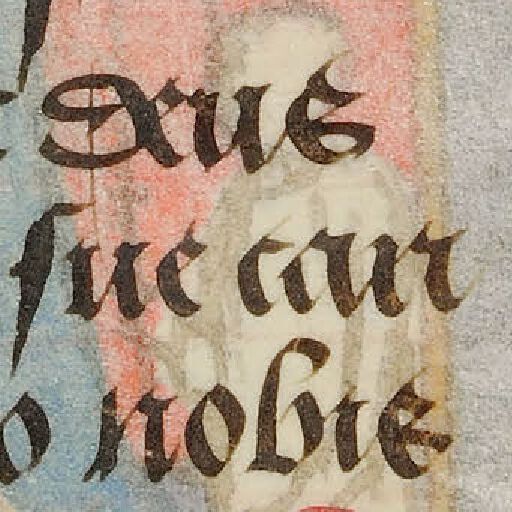 Deus
sue car
o nobis